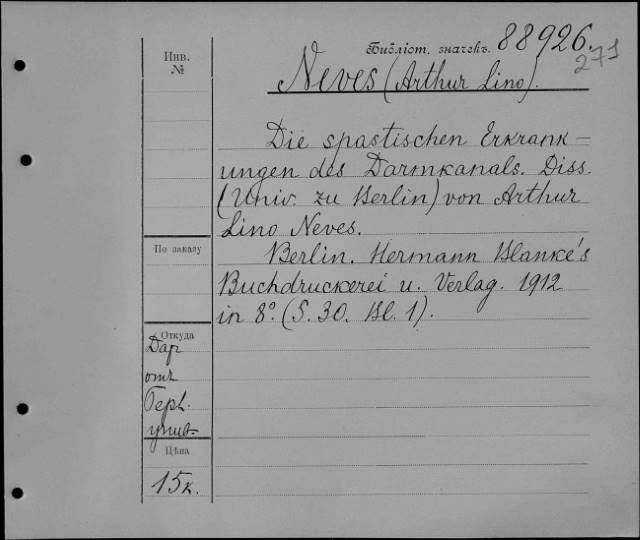 Библіот. значекъ. 88926.
271
Инв.
№
Neves (Arthur Lino).
Die spastischen Erkrank-
ungen des Darmkanals. Diss.
(Univ. zu Berlin) von Arthur
Lino Neves.
По заказу
Berlin. Hermann Blanke's
Buchdruckerei u. Verlag. 1912
in 8º. (S. 30. Bl. 1).
Откуда
Дар
отъ
унив.
Цѣна
15 к.